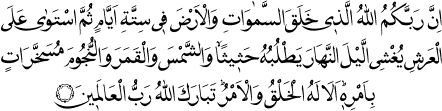 اِنَّ رَبَّكُمُ اللهُ الَّذٖى خَلَقَ السَّمٰوَاتِ وَالْاَرْضَ فٖى سِتَّةِ اَيَّامٍ ثُمَّ اسْتَوٰى عَلَى
الْعَرْشِ يُغْشِى الَّيْلَ النَّهَارَ يَطْلُبُهُ حَثٖيثًا وَالشَّمْسَ وَالْقَمَرَ وَالنُّجُومَ مُسَخَّرَاتٍ
بِاَمْرِهٖ اَلَا لَهُ الْخَلْقُ وَالْاَمْرُ تَبَارَكَ اللهُ رَبُّ الْعَالَمٖينَ